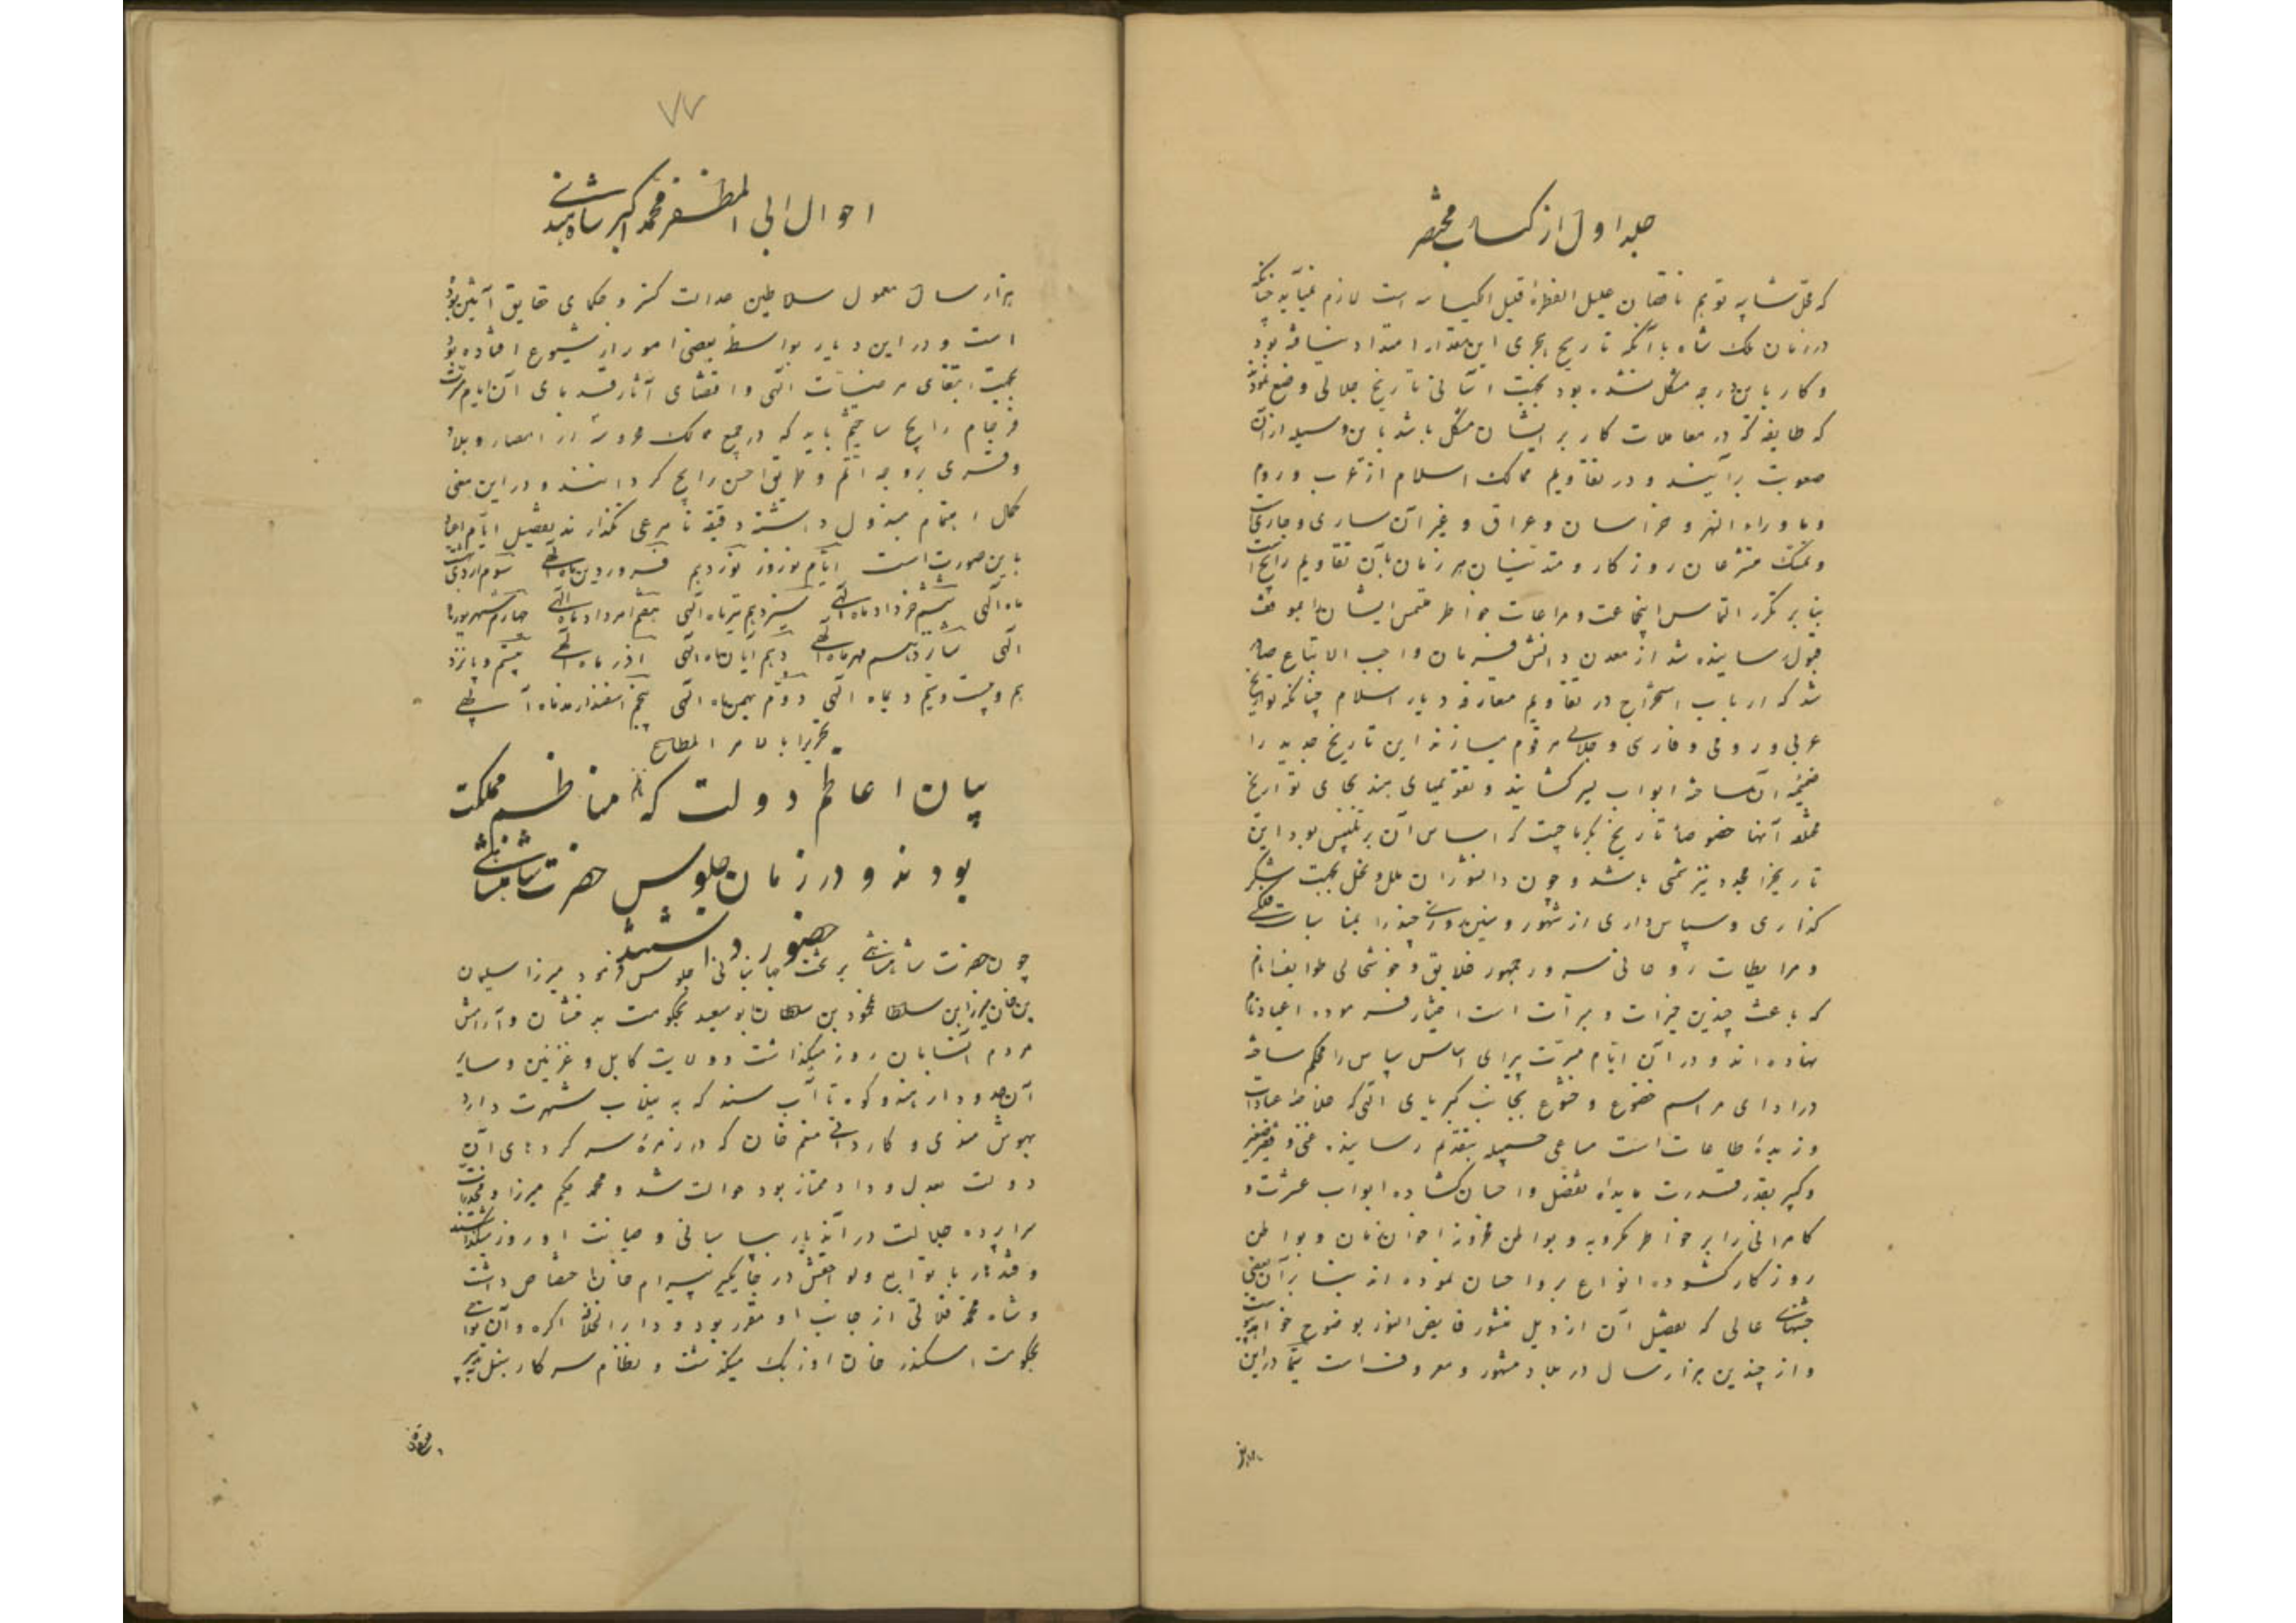 جلد اول از کتاب مختصر
که محل شایبه توهم ناقصان علیل الفطرة قلیل الکیاسه است لازم نمی‌آید چنانکه
در زمان ملک شاه با آنکه تاریخ هجری این مقدار امتداد نیافته بود
و کار باین درجه مشکل نشده بود بجهت آسانی تاریخ جلالی وضع نمودند
که طایفه که در معاملات کار بر ایشان مشکل باشد باین وسیله از آن
صعوبت برآیند و در تقاویم ممالک اسلام از عرب و روم
و ماوراء النهر و خراسان و عراق و غیر آن ساری و جاری است
و تمسک متشرعان روزگار و متدینان هر زمان بآن تقاویم رایج است
بنابر تکرر التماس اینجماعت و مراعات خواطر ملتمس ایشان بموقف
قبول رسانیده شد از معدن دانش فرمان واجب الاتباع صادر
شد که ارباب استخراج در تقاویم متعارف دیار اسلام چنانکه تواریخ
عربی و رومی و فارسی و جلالی مرقوم میسازند این تاریخ جدید را
ضمیمه آن ساخته ابواب یسر گشایند و تقویمهای هند بجای تواریخ
مختلفه آنها خصوصا تاریخ بکرماجیت که اساس آن بر تلبیس بود این
تاریخ را مجدد نیز مثمی باشد و چون دانشوران ملل و نحل بجهت شکر
گذاری و سپاس داری از شهور و سنین روزی چند را بمناسبات فلکی
و مرابطات روحانی سرور جمهور خلایق و خوشحالی طوایف انام
که باعث چندین خیرات و مبرات است اختیار فرموده اعیاد نام
نهاده‌اند و در آن ایام مسرت پیرای اساس سپاس را محکم ساخته
در ادای مراسم خضوع و خشوع بجانب کبریای الهی که خلاصه عبادات
و زبدهٔ طاعات است مساعی جمیله بتقدیم رسانیده غنی و فقیر صغیر
و کبیر بقدر قدرت مایده تفضل و احسان گشاده ابواب عشرت و
کامرانی را بر خواطر مکروبه و بواطن محزونه اخوان زمان و بواطن
روزگار گشوده انواع بر و احسان نموده‌اند بنا بر آن بعضی
جشنهای عالی که تفصیل آن از ذیل منشور فایض النور بوضوح خواهد پیوست
و از چندین هزار سال در بلاد مشهور و معروف است تیمنا در این
هزار
۷۷
احوال ابی المظفر محمد اکبر شاه هندی
هزار سال معمول سلاطین عدالت گستر و حکمای حقایق آیین بوده
است و در این دیار بواسطه بعضی امور از شیوع افتاده بود
بجهت ابتغای مرضیات الهی و اقتفای آثار قدمای آن ایام مسرت
فرجام را رایج ساختیم باید که در جمیع ممالک محروسه از امصار و بلاد
و قری بر وجه اتم و طریق احسن رایج گردانند و در این معنی
کمال اهتمام مبذول داشته دقیقه نامرعی نگذارند تفصیل ایام اعیاد
باین صورت است ایام نوروز نوزدهم فروردین ماه الهی سوم اردی بهشت
ماه الهی ششم خرداد ماه الهی سیزدهم تیر ماه الهی هفتم امرداد ماه الهی چهارم شهریور ماه
الهی شانزدهم مهر ماه الهی دهم آبان ماه الهی اذر ماه الهی هشتم و پانزد
هم و بیست و سیم دیماه الهی دوم بهمن ماه الهی پنجم اسفندارمذ ماه الهی
تحریرا بالامر المطاع
بیان اعاظم دولت که ناظم مناظم مملکت
بودند و در زمان جلوس حضرت شاهنشاهی
حضور داشتند
چون حضرت شاهنشاهی بر تخت جهانبانی جلوس فرمود میرزا سلیمان
بن خان میرزا بن سلطان محمود بن سلطان ابو سعید بحکومت بدخشان و آرامش
مردم آنسامان روز میگذاشت و ولایت کابل و غزنین و سایر
آن حدود از هندو کوه تا آب سند که به نیلاب شهرت دارد
بهوش مندی و کاردانی منعم خان که در زمرهٔ سر کرده‌های آن
دولت بعدل و داد ممتاز بود حوالت شد و محمد حکیم میرزا و مخدرات
سراپرده جلالت در آندیار بپاسبانی و صیانت او روز میگذراشتند
و قندهار با توابع و لواحقش در جایگیر بیرام خان اختصاص داشت
و شاه محمد قلاتی از جانب او مقرر بود و دار الخلافه اکره و آن نواحی
بحکومت اسکندر خان اوزبک میگذشت و نظام سرکار سنبل